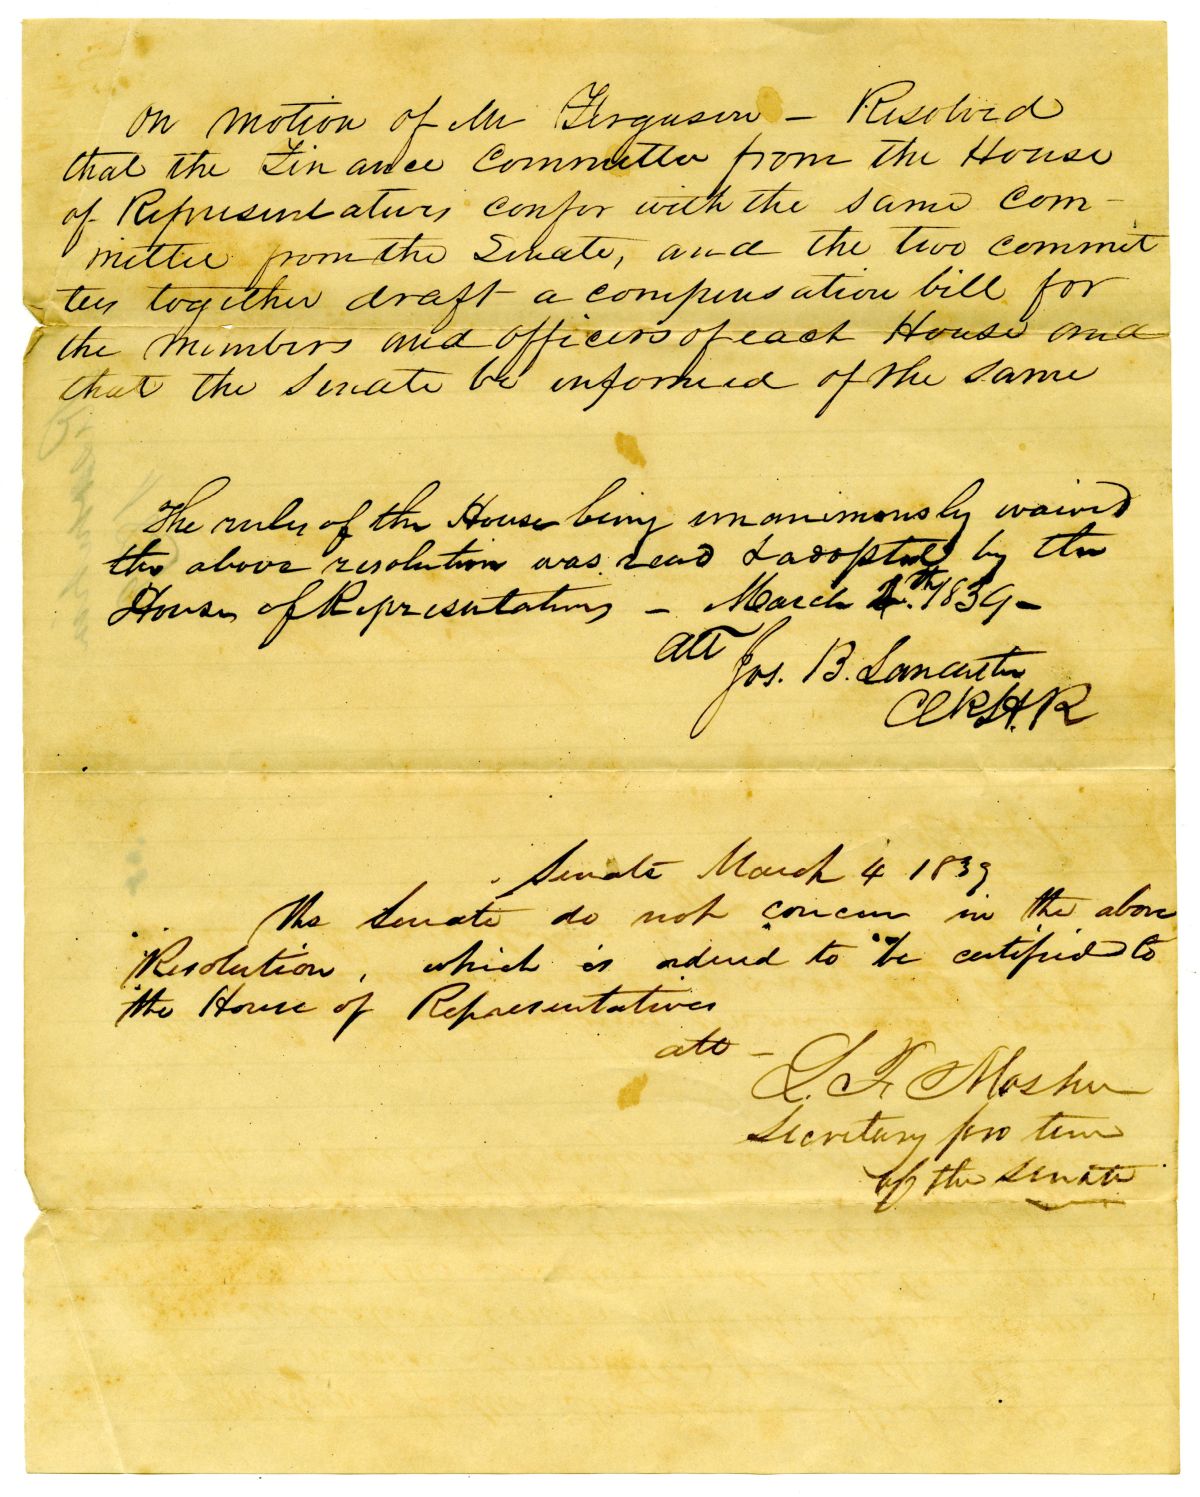 On motion of Mr Ferguson — Resolved
that the Finance Committee from the House
of Representatives confer with the same Com-
mittee from the Senate, and the two commit
tees together draft a compensation bill for
the members and officers of each House and
that the Senate be informed of the same
The rules of the House being unanimously waived
the above resolution was read & adopted by the
House of Representatives — March th. 1839 —
Att
Jos. B. Lancaster
Clk H. R
Senate March 4 1839
The Senate do not concur in the above
Resolution, which is ordered to be certified to
the House of Representatives
att —
L. F. Mosher
Secretary pro tem
of the Senate